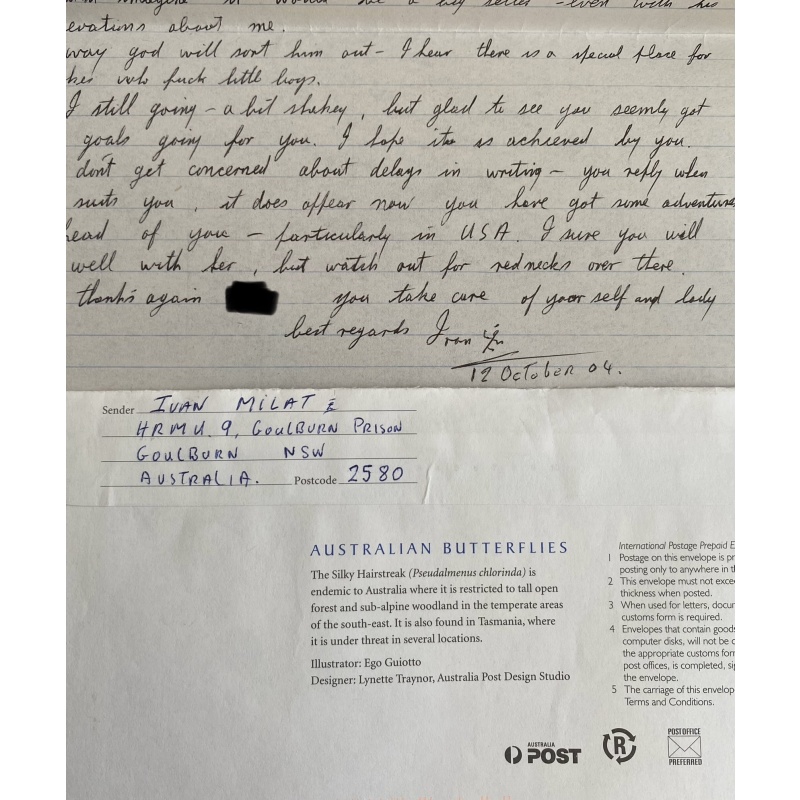 even with his
evations about me.
way god will sort him out - I hear there is a special place for
hes who fuck little boys.
I still going - a bit shakey, but glad to see you seemly got
goals going for you. I hope its is achieved by you.
dont get concerned about delays in writing - you reply when
suits you, it does appear now you have got some adventures
head of you - particularly in USA. I sure you will
well with her, but watch out for rednecks over there.
thanks again you take care of your self and lady
best regards Ivan
12 OCTOBER 04.
Sender IVAN MILAT
HRMU. 9, GOULBURN PRISON
GOULBURN NSW
AUSTRALIA. Postcode 2580
AUSTRALIAN BUTTERFLIES
The Silky Hairstreak (Pseudalmenus chlorinda) is
endemic to Australia where it is restricted to tall open
forest and sub-alpine woodland in the temperate areas
of the south-east. It is also found in Tasmania, where
it is under threat in several locations.
Illustrator: Ego Guiotto
Designer: Lynette Traynor, Australia Post Design Studio
International Postage Prepaid E
1 Postage on this envelope is pr
posting only to anywhere in th
2 This envelope must not exce
thickness when posted.
3 When used for letters, docum
customs form is required.
4 Envelopes that contain goods
computer disks, will not be c
the appropriate customs form
post offices, is completed, sig
the envelope.
5 The carriage of this envelop
Terms and Conditions.
AUSTRALIA
POST
R
POST OFFICE
PREFERRED